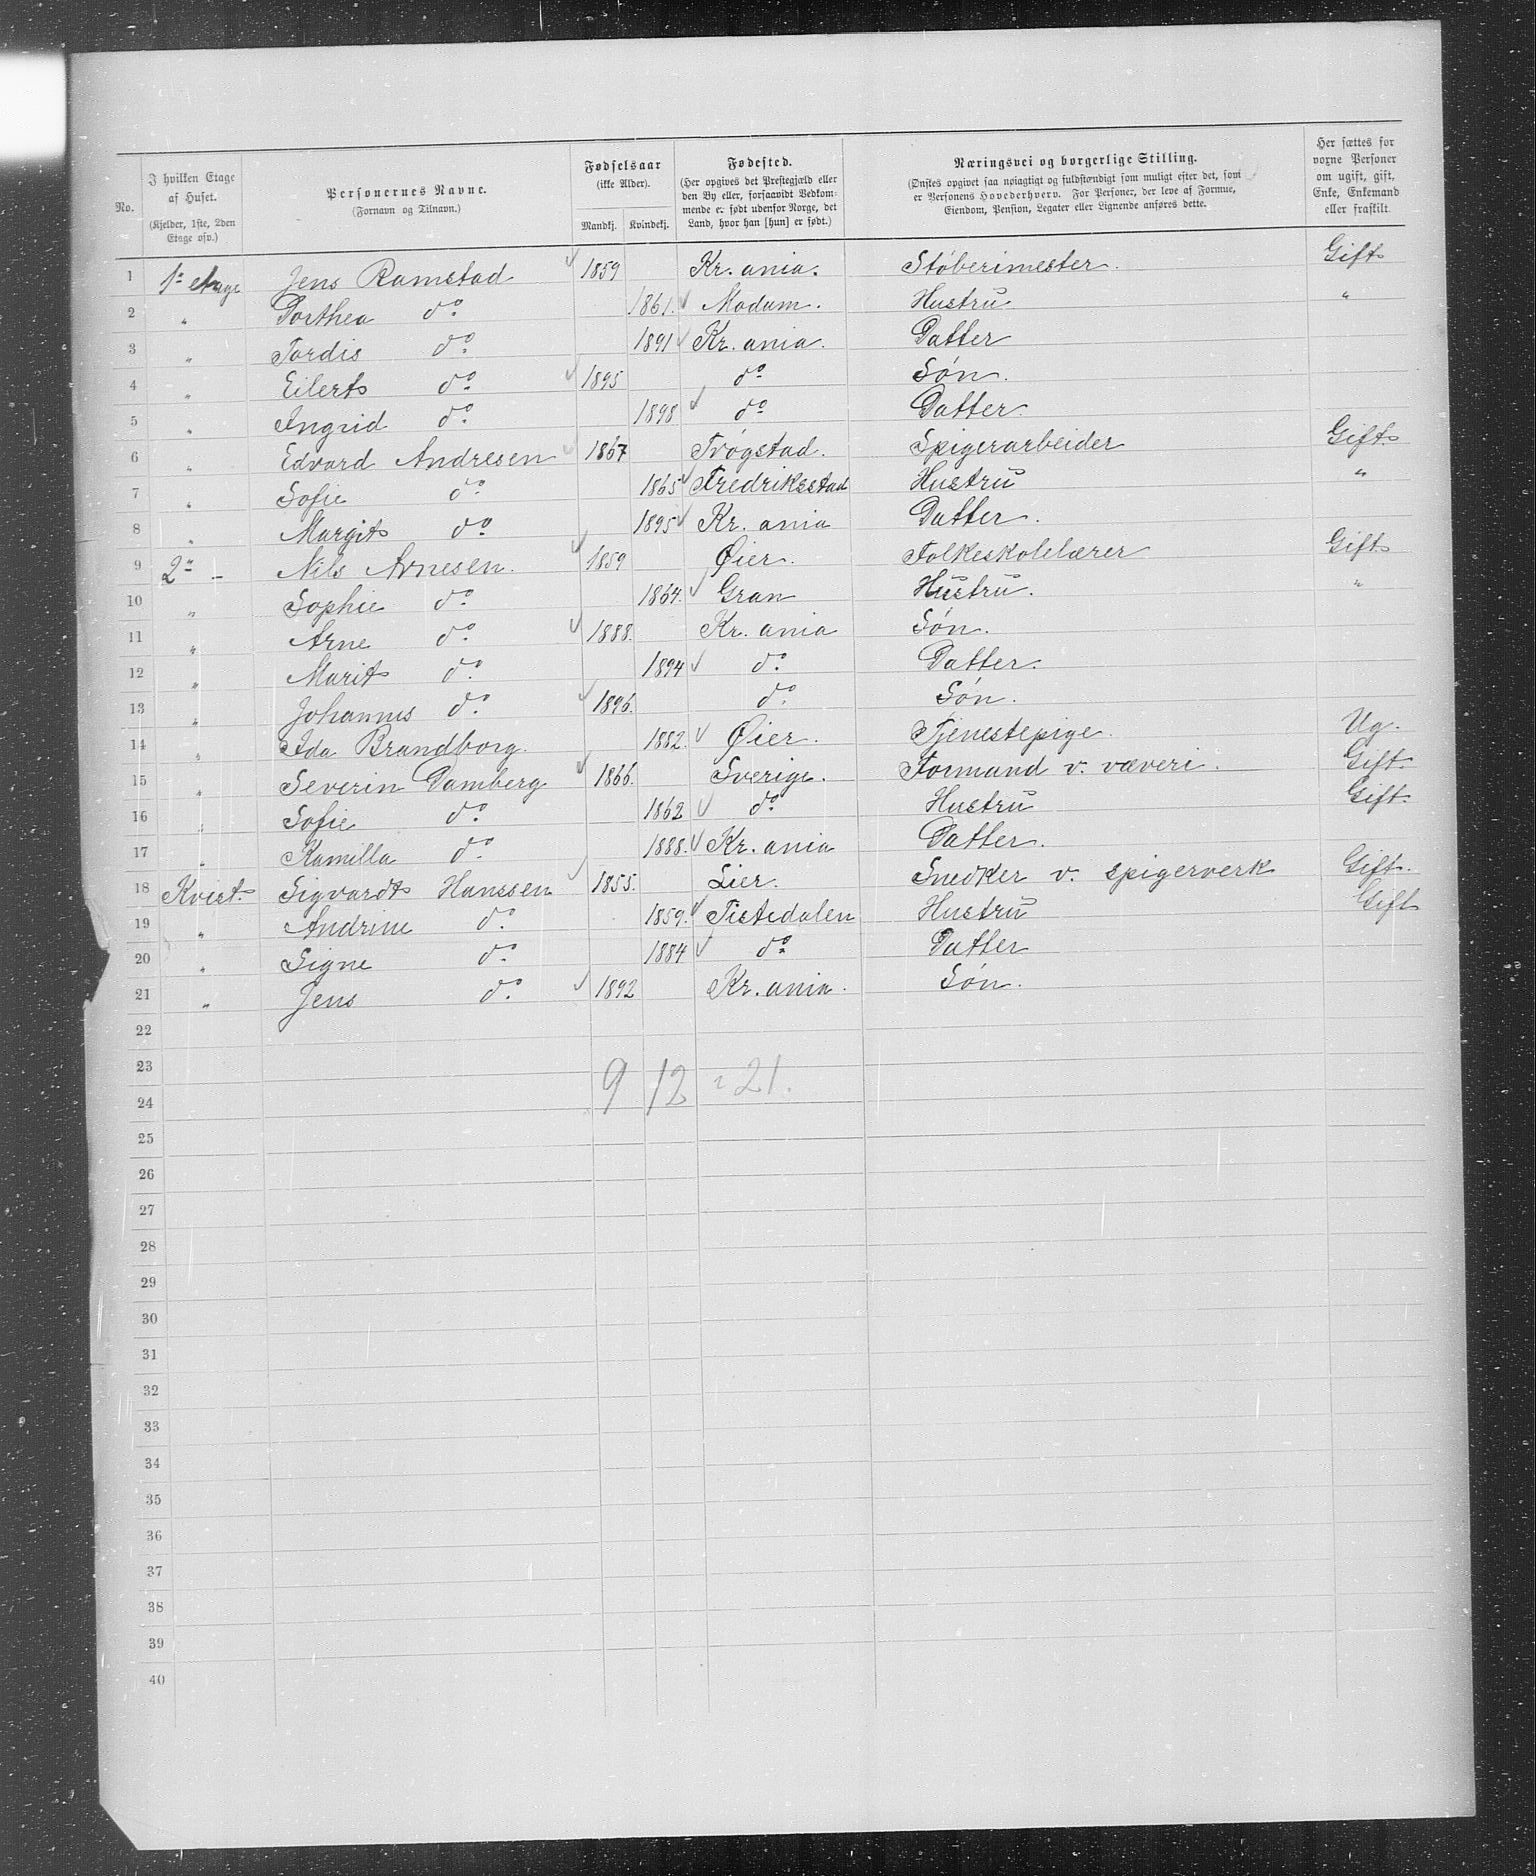 No.
I hvilken Etage af Huset.
(Kjelder, 1ste, 2den Etage osv.)
Personernes Navne.
(Fornavn og Tilnavn.)
Fødselsaar
(ikke Alder).
Mandkj. Kvindekj.
Fødested.
(Her opgives det Prestegjæld eller den By eller, forsaavidt Vedkommende er født udenfor Norge, det Land, hvor han [hun] er født.)
Næringsvei og borgerlige Stilling.
(Ønskes opgivet saa nøiagtigt og fuldstændigt som muligt efter det, som er Personens Hovederhverv. For Personer, der leve af Formue, Eiendom, Pension, Legater eller Lignende anføres dette.
Her sættes for voxne Personer om ugift, gift, Enke, Enkemand eller fraskilt.
1 1ᵉ etage Jens Ramstad 1859 Kr.ania. Støberimester. Gift
2 " Dorthea do 1861. Modum. Hustru "
3 " Tordis do 1891 Kr.ania. Datter
4 " Eilert do 1895 do Søn.
5 " Ingrid do 1898 do Datter.
6 " Edvard Andresen 1867 Trøgstad. Spigerarbeider Gift
7 " Sofie do 1865 Fredriksstad Hustru "
8 " Margit do 1895 Kr.ania Datter.
9 2ⁿ – Nils Arnesen. 1859 Øier. Folkeskolelærer Gift
10 " Sophie do 1864. Gran Hustru. "
11 " Arne do 1888. Kr.ania Søn.
12 " Marit do 1894 do Datter.
13 " Johannes do 1896. do Søn.
14 " Ida Brandborg. 1882. Øier. Tjenestepige. Ug.
15 " Severin Damberg 1866. Sverige. Formand v. væveri. Gift.
16 " Sofie do 1862 do Hustru Gift.
17 " Kamilla do 1888. Kr.ania Datter.
18 Kvist. Sigvardt Hanssen 1855. Lier. Snedker v. spigerverk Gift.
19 " Andrine do 1859. Tistedalen Hustru Gift
20 " Signe do 1884 do Datter
21 " Jens do 1892 Kr.ania. Søn.
22
23 9 12 = 21.
24
25
26
27
28
29
30
31
32
33
34
35
36
37
38
39
40